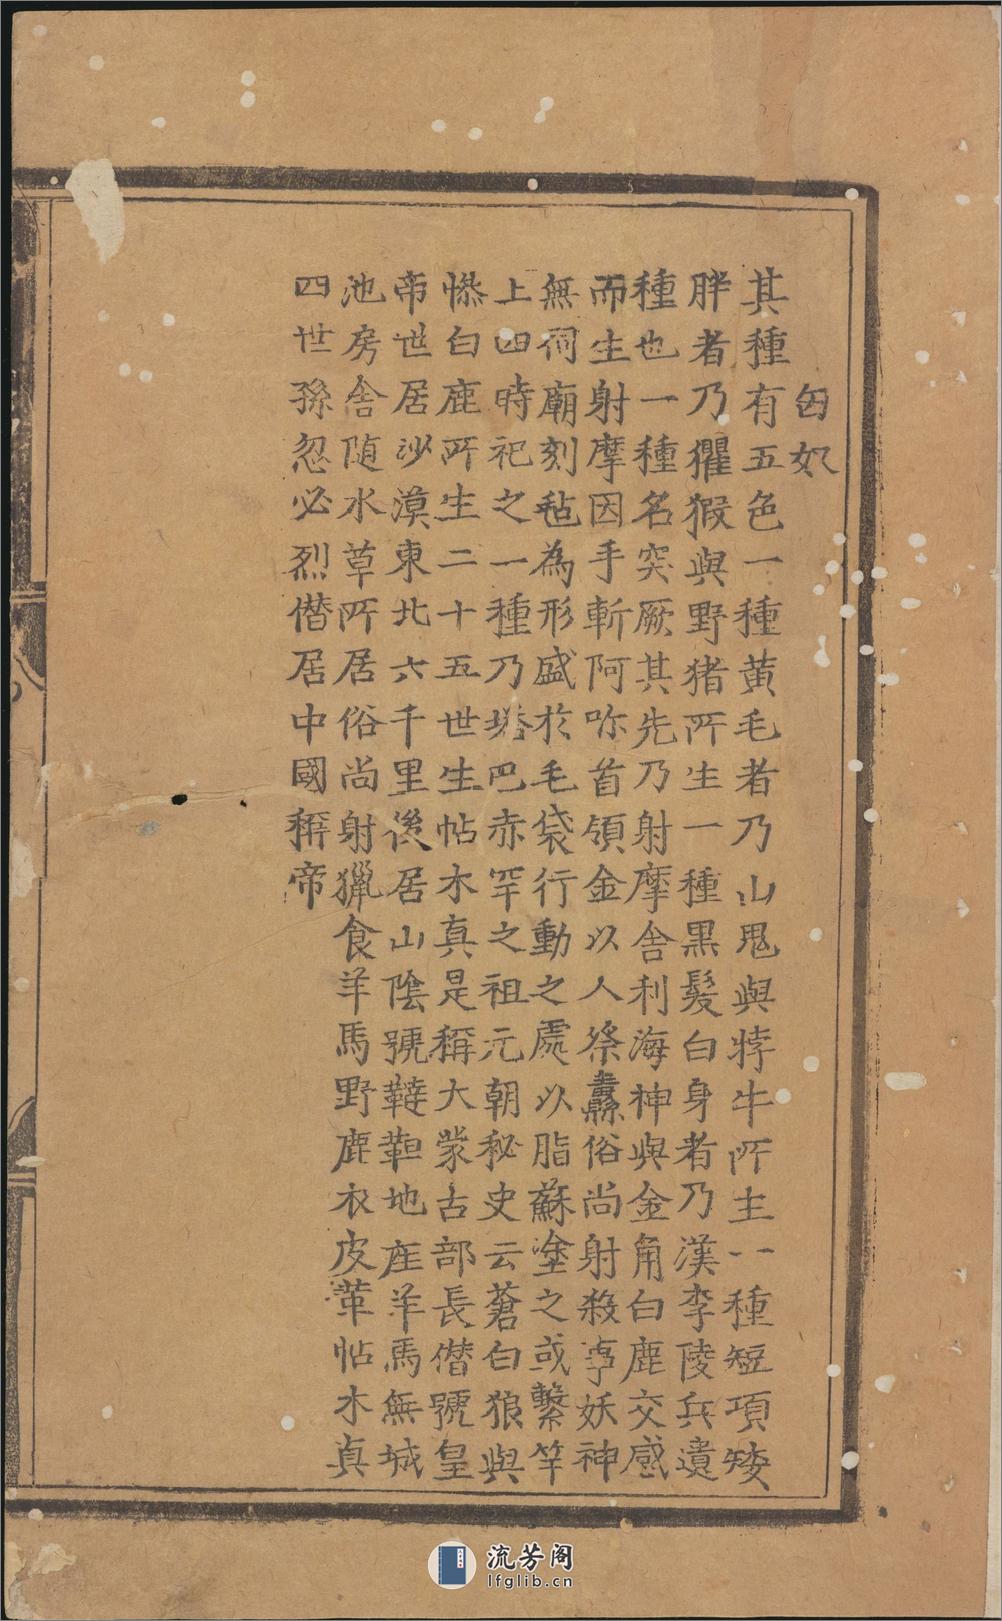 匈奴
其種有五色一種黄毛者乃山鬼與牸牛所主一種短項矮
胖者乃玃猳與野猪所生一種黒髪白身者乃漢李陵兵遺
種也一種名突厥其先乃射摩舎利海神與金角白鹿交感
而生射摩因手斬阿㕵首領金以人祭纛俗尚射殺事妖神
無祠廟刻毡為形盛於毛袋行動之處以脂蘇塗之或繫竿
上四時祀之一種乃㙮巴赤罕之祖元朝秘史云蒼白狼與
惨白鹿所生二十五世生帖木真是稱大蒙古部長僣號皇
帝世居沙漠東北六千里後居山隂號韃靼地産羊馬無城
池房舎随水草所居俗尚射獵食羊馬野鹿衣皮革帖木真
四世孫忽必烈僣居中國稱帝
流芳阁
lfglib.cn